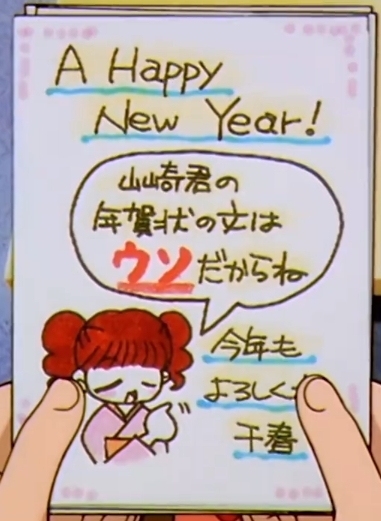 A Happy
New Year!
山崎君の
年賀状の文は
ウソだからね
今年も
よろしく
千春